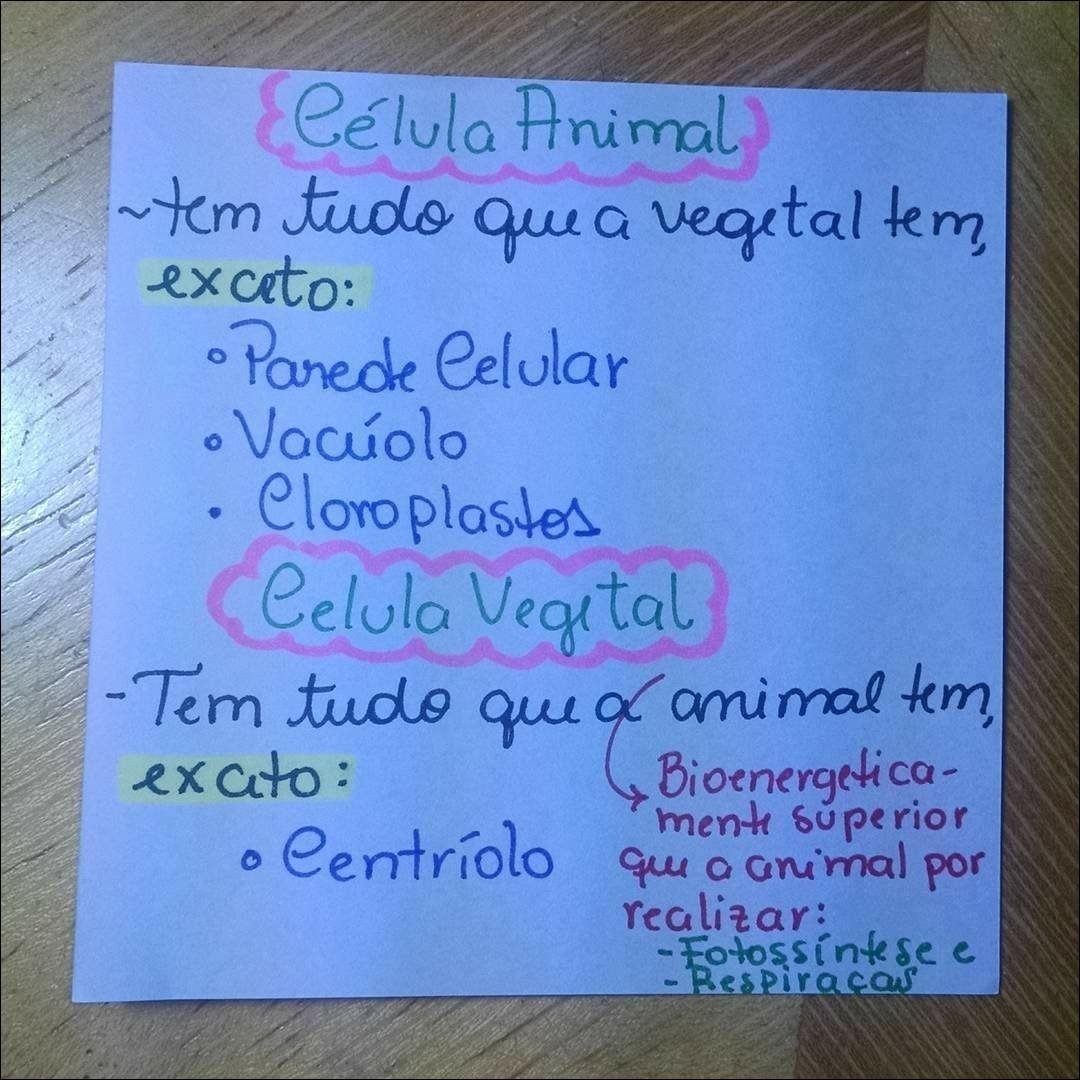 Célula Animal
~tem tudo que a vegetal tem,
exceto:
• Parede Celular
• Vacúolo
• Cloroplastos
Celula Vegetal
- Tem tudo que a animal tem,
exceto:
• Centríolo
Bioenergetica-
mente superior
que a animal por
realizar:
- Fotossíntese e
- Respiração